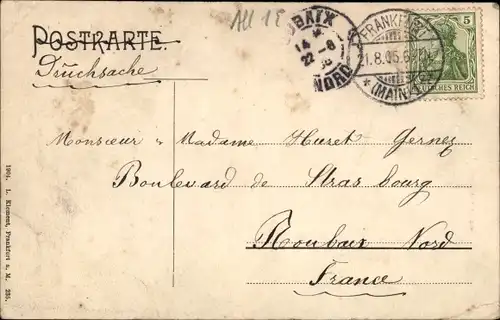 All 15
POSTKARTE.
Drucksache
ROUBAIX
14
22-8
NORD
FRANKFURT
21.8.05.6
* (MAIN) 1
5
DEUTSCHES REICH
Monsieur & Madame Huret Gernez
Boulevard de Strasbourg
Roubaix Nord
France
1904. L. Klement, Frankfurt a. M. 235.